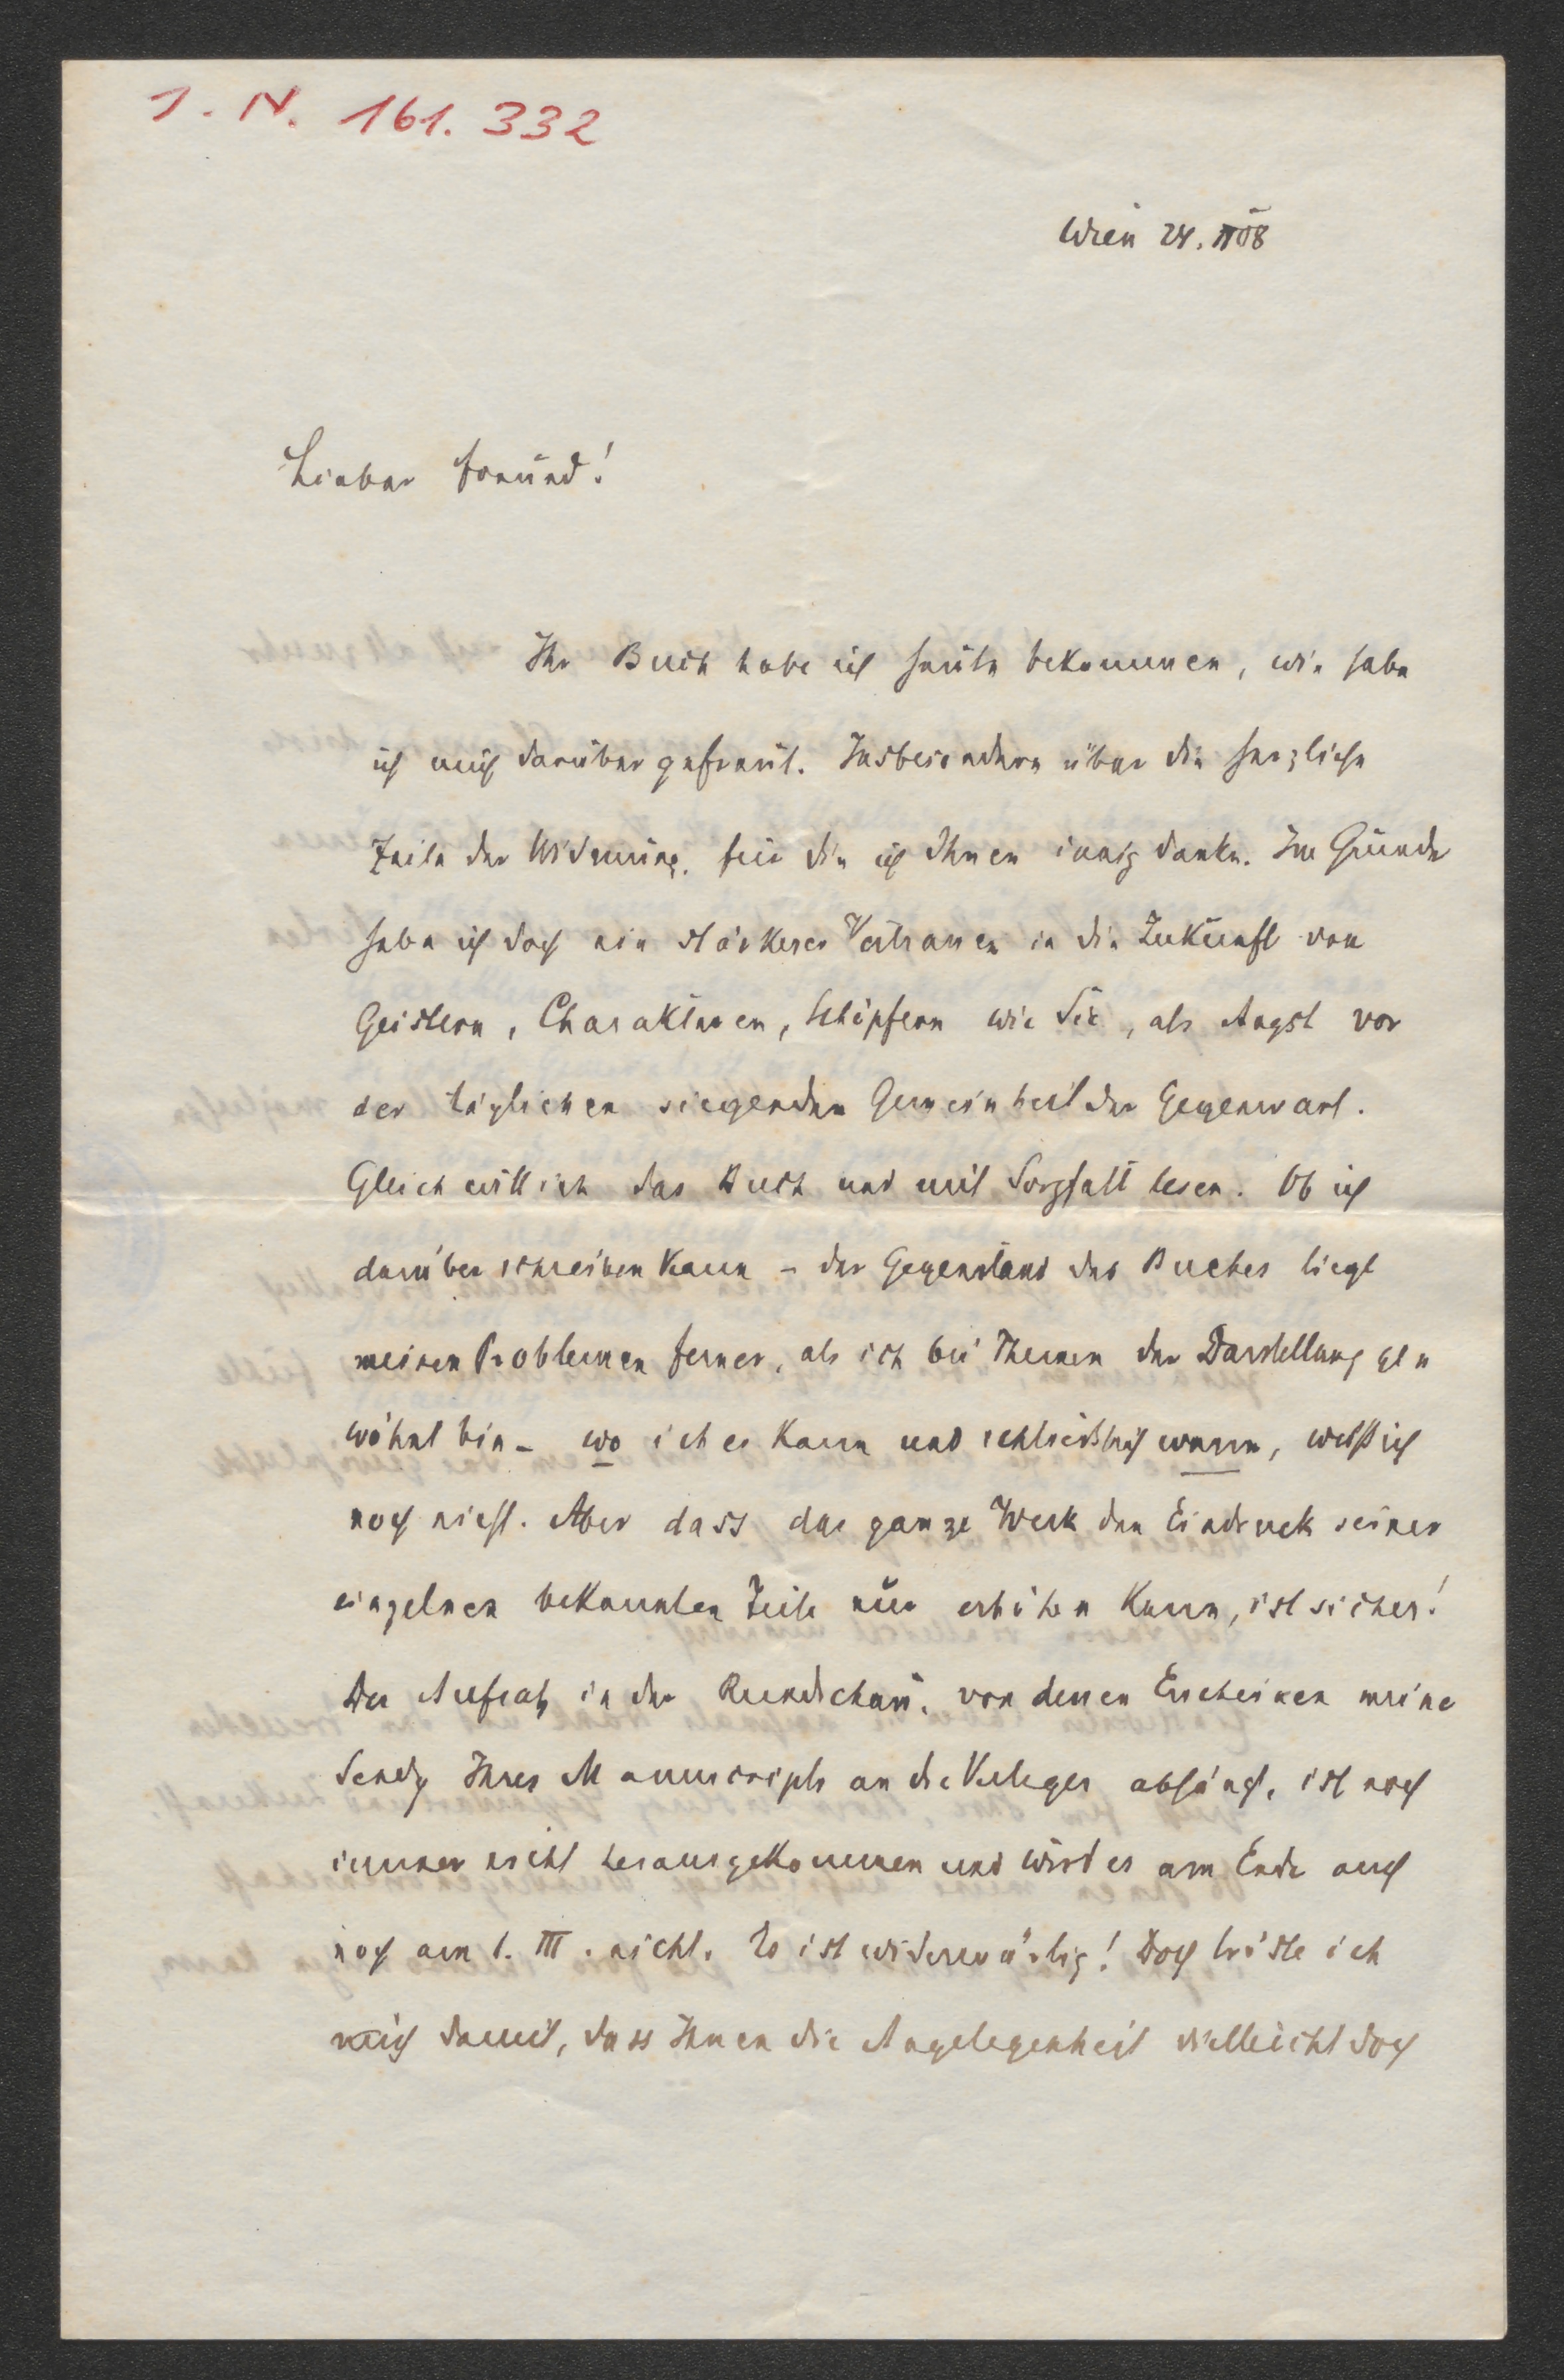 I. N. 161.332
Wien 24. II 08
Lieber Freund!
Ihr Buch habe ich heute bekommen, wie habe
ich mich darüber gefreut. Insbesondere über die herzliche
Zeile der Widmung, für die ich Ihnen innig danke. Im Grunde
habe ich doch ein stärkeres Vertrauen in die Zukunft von
Geistern, Charakteren, Schöpfern wie Sie, als Angst vor
der täglichen siegenden Gemeinheit der Gegenwart.
Gleich will ich das Buch und mit Sorgfalt lesen. Ob ich
darüber schreiben kann – der Gegenstand des Buches liegt
meinen Problemen ferner, als ich bei Themen der Darstellung ge
wöhnt bin – wo ich es kann und schließlich wann, weiß ich
noch nicht. Aber dass das ganze Werk den Eindruck seiner
einzelnen bekannten Teile nur erhöhen kann, ist sicher!
Der Aufsatz in der Rundschau, von dessen Erscheinen meine
Sendg Ihres Manuscripts an die Verleger abhängt, ist noch
immer nicht herausgekommen und wird es am Ende auch
noch am 1. III. nicht. Es ist widerwärtig! Doch tröste ich
mich damit, dass Ihnen die Angelegenheit vielleicht doch